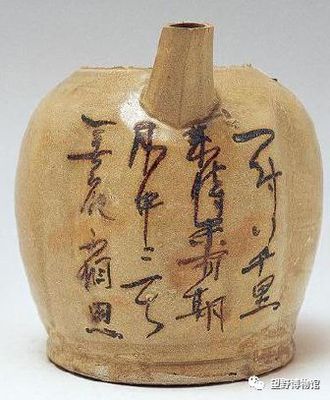 一別行千里
來時未有期
月中三十日
無夜不相思
望野博物馆